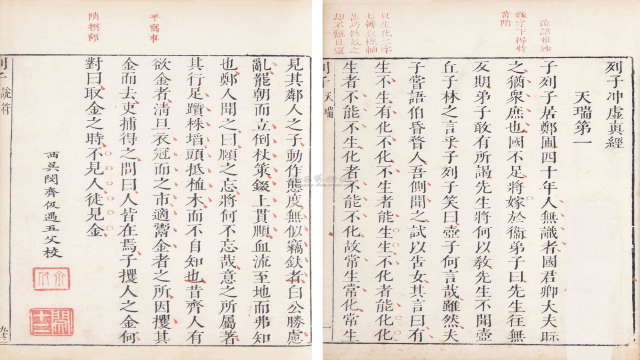 列子冲虛真經
天瑞第一
子列子居鄭圃四十年人無識者國君卿大夫眎
之猶衆庶也國不足將嫁於衞弟子曰先生往無
反期弟子敢有所謁先生將何以教先生不聞壺
丘子林之言乎子列子笑曰壺子何言哉雖然夫
子嘗語伯昏瞀人吾側聞之試以告女其言曰有
生不生有化不化不生者能生生不化者能化化
生者不能不生化者不能不化故常生常化常生
列子 天瑞
見其鄰人之子動作態度無似竊鈇者白公勝慮
亂罷朝而立倒杖策錣上貫頤血流至地而弗知
也鄭人聞之曰頤之忘將何不忘哉意之所屬著
其行足躓株埳頭抵植木而不自知也昔齊人有
欲金者淸旦衣冠而之市適鬻金者之所因攫其
金而去吏捕得之問曰人皆在焉子攫人之金何
對曰取金之時不見人徒見金
西吳閔齊伋遇五父校
列子 說符